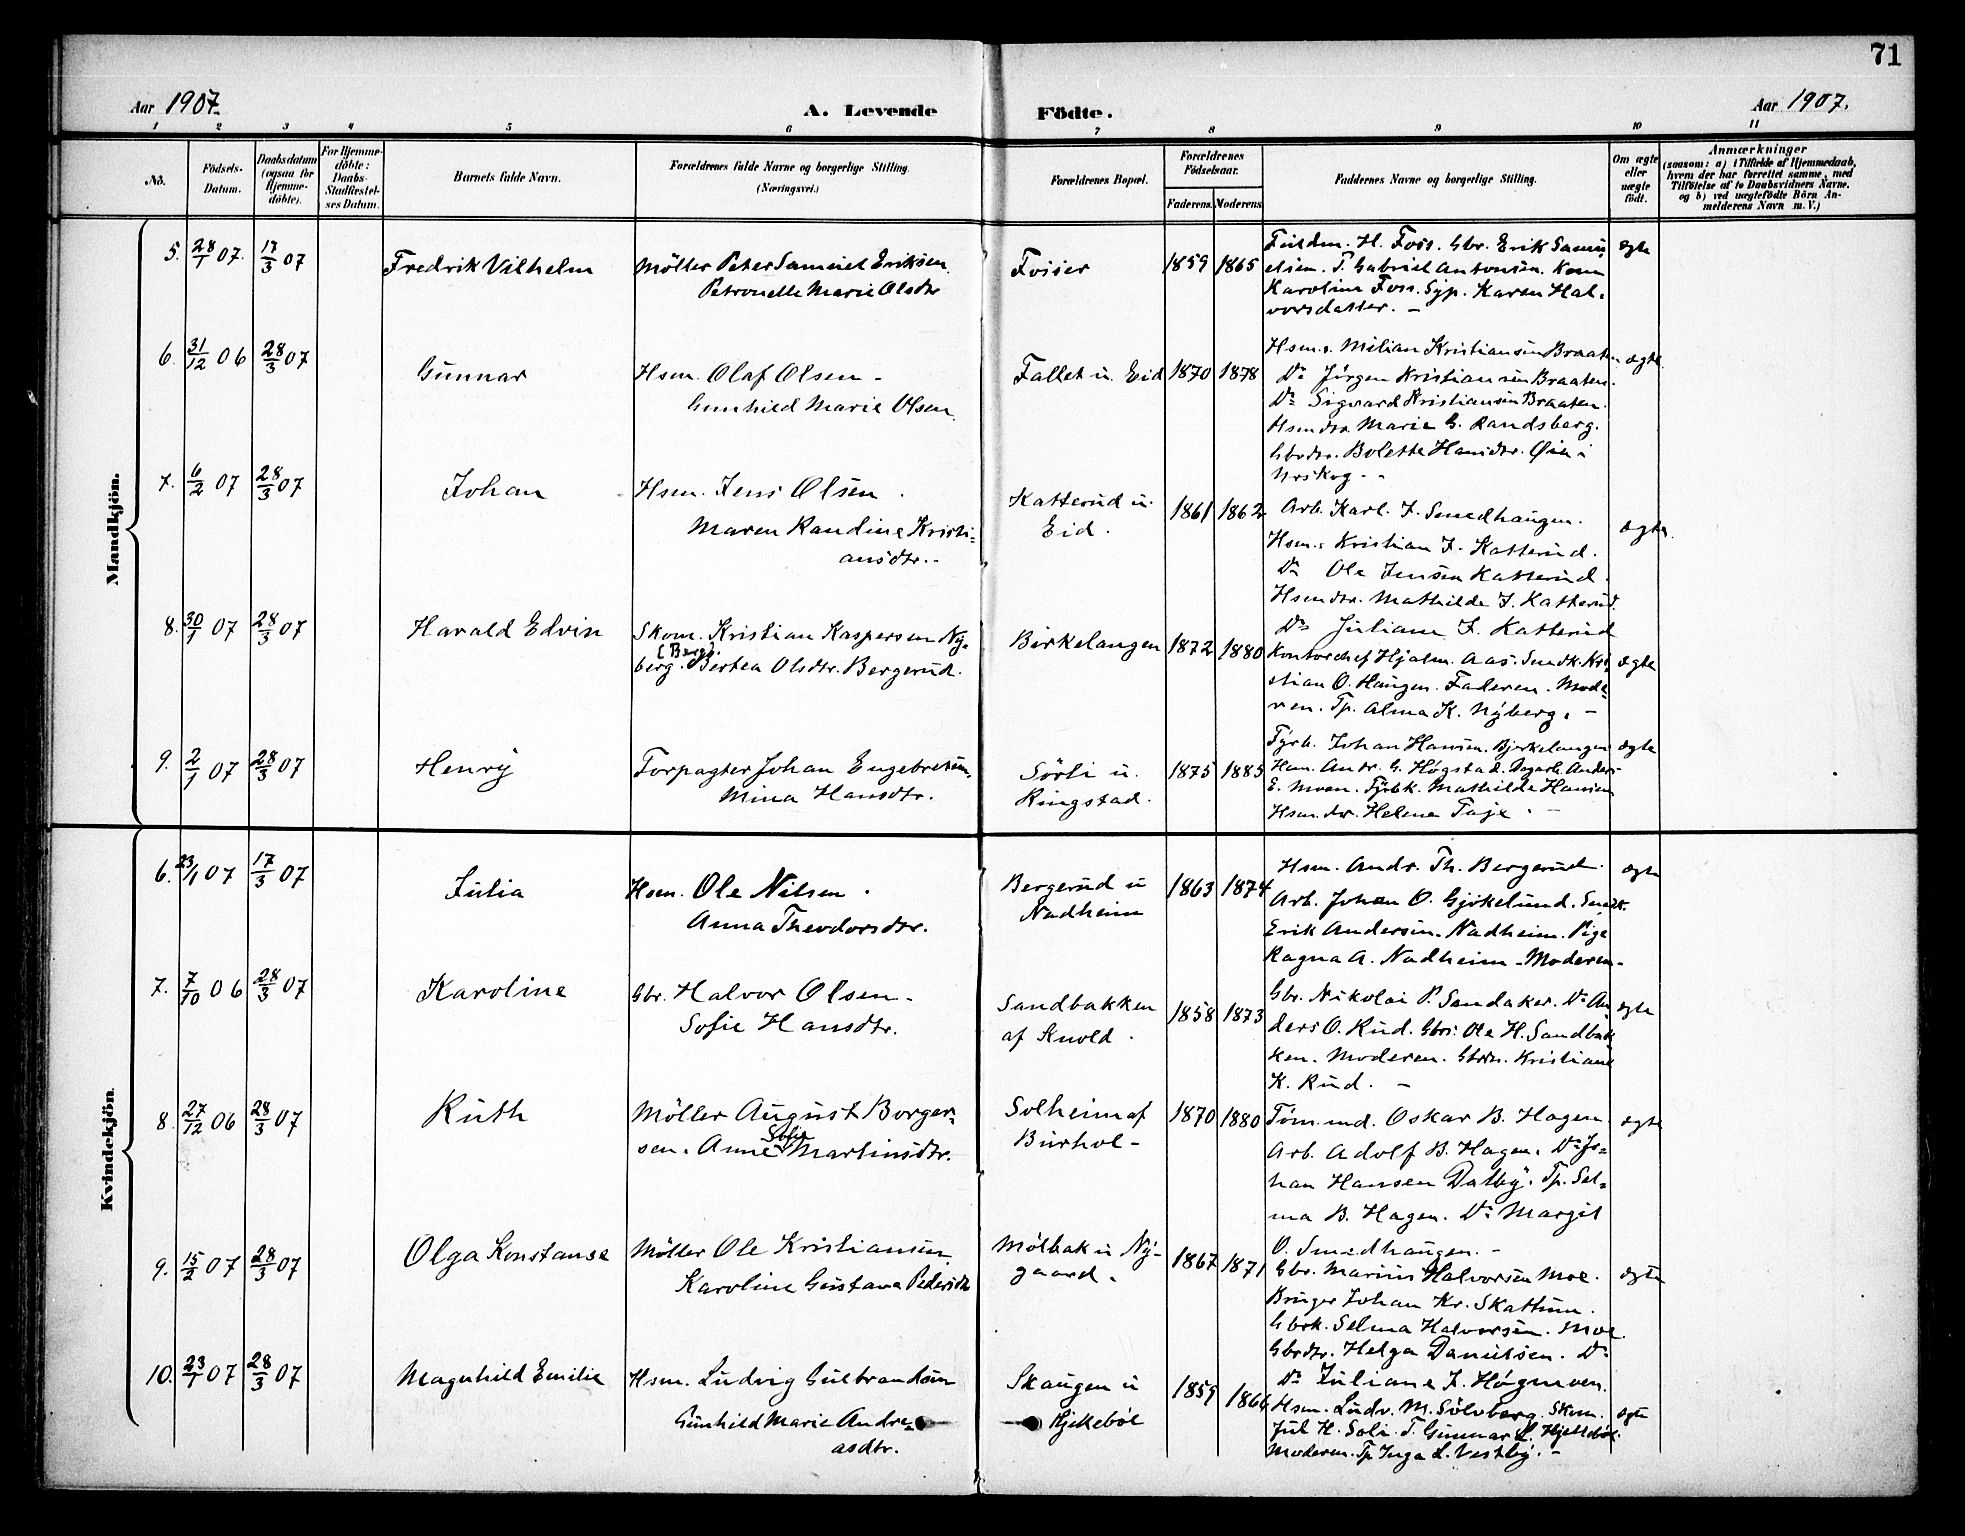 71
Aar 1907.
A. Levende
Födte.
Aar 1907.
1 2 3 4 5 6 7 8 9 10 11
No.
Födsels-Datum.
Daabsdatum (ogsaa for Hjemmedöbte).
For Hjemmedöbte: Daabs-Stadfæstelses Datum.
Barnets fulde Navn.
Forældrenes fulde Navne og borgerlige Stilling.
(Næringsvei.)
Forældrenes Bopæl.
Forældrenes Födselsaar.
Faderens. Moderens.
Faddernes Navne og borgerlige Stilling.
Om ægte eller uægte födt.
Anmærkninger
(saasom: a) i Tilfælde af Hjemmedaab, hvem der har forrettet samme, med Tilföielse af to Daabsvidners Navne, og b) ved uægtefödte Börn Anmelderens Navn m. V.)
Mandkjön.
5. 28/1 07. 17/3 07 Fredrik Vilhelm
Möller Peter Samuel Eriksen
Petronelle Marie Olsdtr
Fosser 1859 1865
H. Foss. Gbr. Erik Samu-
elsen. T. Gabriel Antonsen. Kone
Karoline Foss. Syp. Karen Hal-
vorsdatter. –
ægte
6. 31/12 06 28/3 07 Gunnar
Hsm. Olaf Olsen –
Gunhild Marie Olsen.
Fallet u. Eid 1870 1878
Hsm. Milian Kristiansen Braaten
Do Jörgen Kristiansen Braaten.
Do Sigvard Kristiansen Braaten.
Hsmdtr. Marie G. Randsberg.
Gbrdtr. Bolette Hansdtr. Øien i
Urskog. –
ægte
7. 6/2 07 28/3 07 Johan
Hsm. Jens Olsen.
Maren Randine Kristi-
ansdtr. –
Katterud u.
Eid. 1861 1862
Arb. Karl. J. Smedhaugen.
Hsm. Kristian J. Katterud.
Do Ole Jensen Katterud.
Hsmdtr. Mathilde J. Katterud.
Do Juliane J. Katterud
ægte.
8. 30/1 07 28/3 07 Harald Edvin
Skom. Kristian Kaspersen Ny-
(Berg).
berg. Bertea Olsdtr. Bergerud.
Birkelangen 1872 1880
Kontorchef Hjalm. Aas. Smedk. Kri-
stian O. Haugen. Faderen. Mode-
ren. Tp. Alma K. Nyberg. –
ægte
9. 2/1 07 28/3 07 Henry
Forpagter Johan Engebretsen.
Mina Hansdtr.
Sörli u.
Ringstad. 1875 1885
Fyrb. Johan Hansen. Bjerkelangen
Hsm. Andr. G. Høgstad. Dagarb. Anders
E. Moen. Fyrbk. Mathilde Hansen
Hsm. dtr. Helene Toje. –
ægte
Kvindekjön.
6. 23/1 07 17/3 07 Julia
Hsm. Ole Nilsen.
Anna Theodorsdtr.
Bergerud u
Nadheim 1863 1874
Hsm. Andr. Th. Bergerud.
Arb. Johan O. Gjökelund. Smedk.
Erik Andersen. Nadheim. Pige
Ragna A. Nadheim – Moderen –
ægte
7. 7/10 06 28/3 07 Karoline
Gbr. Halvor Olsen –
Sofie Hansdtr.
Sandbakken
af Knold. 1858 1873
Gbr. Nikolai P. Sandaker. Do An-
ders O. Rud. Gbrs. Ole H. Sandbak-
ken. Moderen. Gbrdtr. Kristiane
K. Rud. –
ægte
8. 27/12 06 28/3 07 Ruth
Möller August Borger-
Sofie
sen. Anne Martinsdtr.
Solheim af
Burhol – 1870 1880
Töm.md. Oskar B. Hagen.
Arb. Adolf B. Hagen. Do Jo-
han Hansen Dalby. Tp. Sel-
ma B. Hagen. Do Margit
O. Smedhaugen. –
ægte
9. 15/2 07 28/3 07 Olga Konstanse
Möller Ole Kristiansen
Karoline Gustava Pedersdtr
Mölbak u Ny-
gaard. 1867 1871
Gbr. Marius Halvorsen Moe.
Bruger Johan Kr. Skattum.
Gbrk. Selma Halvorsen. Moe.
Gbrdtr. Helga Danielsen. Do
Do Juliane J. Høgmoen.
ægte
10. 23/1 07 28/3 07 Magnhild Emilie
Hsm. Ludvig Gulbrandsen
Gunhild Marie Andre-
asdtr.
Skaugen u
Hjellebøl 1859 1864
Hsm. Ludv. M. Sölvberg. Skom.
Jul H. Soli. T. Gunnar L. Hjellebøl.
Moderen. Tp Inga L. Vestby. –
ægte